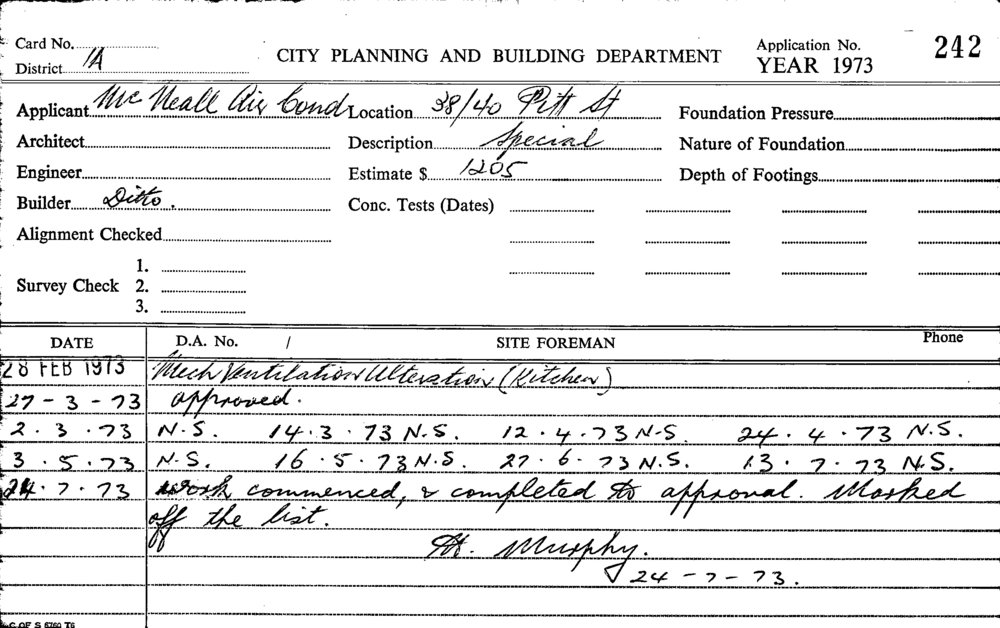 Card No.
District 1A
CITY PLANNING AND BUILDING DEPARTMENT
Application No. 242
YEAR 1973
Applicant Mc Neall Air Cond Location 38/40 Pitt St Foundation Pressure
Architect Description Special Nature of Foundation
Engineer Estimate $ 1205 Depth of Footings
Builder Ditto. Conc. Tests (Dates)
Alignment Checked
1.
Survey Check 2.
3.
DATE D.A. No. / SITE FOREMAN Phone
28 FEB 1973 Mech Ventilation Alteration (Kitchen)
27-3-73 approved.
2.3.73 N.S. 14.3.73 N.S. 12.4.73 N.S. 24.4.73 N.S.
3.5.73 N.S. 16.5.73 N.S. 27.6.73 N.S. 13.7.73 N.S.
24.7.73 work commenced, & completed to approval. Marked
off the list.
Murphy.
24-7-73.
C OF S 6760 T6